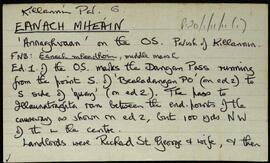 Killannin Par. 6
P120/1/1/1(1)
EANACH MHEÁIN
'Annaghvaan' on the OS. Parish of Killannin.
FNB: Eanach meadhoin, middle marsh
Ed. 1 of the OS. marks the Dangan Pass running
from the point S. of 'Bealadangan PO' (on ed 2) to
S side of 'quay' (on ed 2). The pass to
Illauneeragh ran between the end-points of the
causeway as shown on ed 2, but 100 yds NW
of it in the centre.
Landlords were Richard St. George & wife, & then